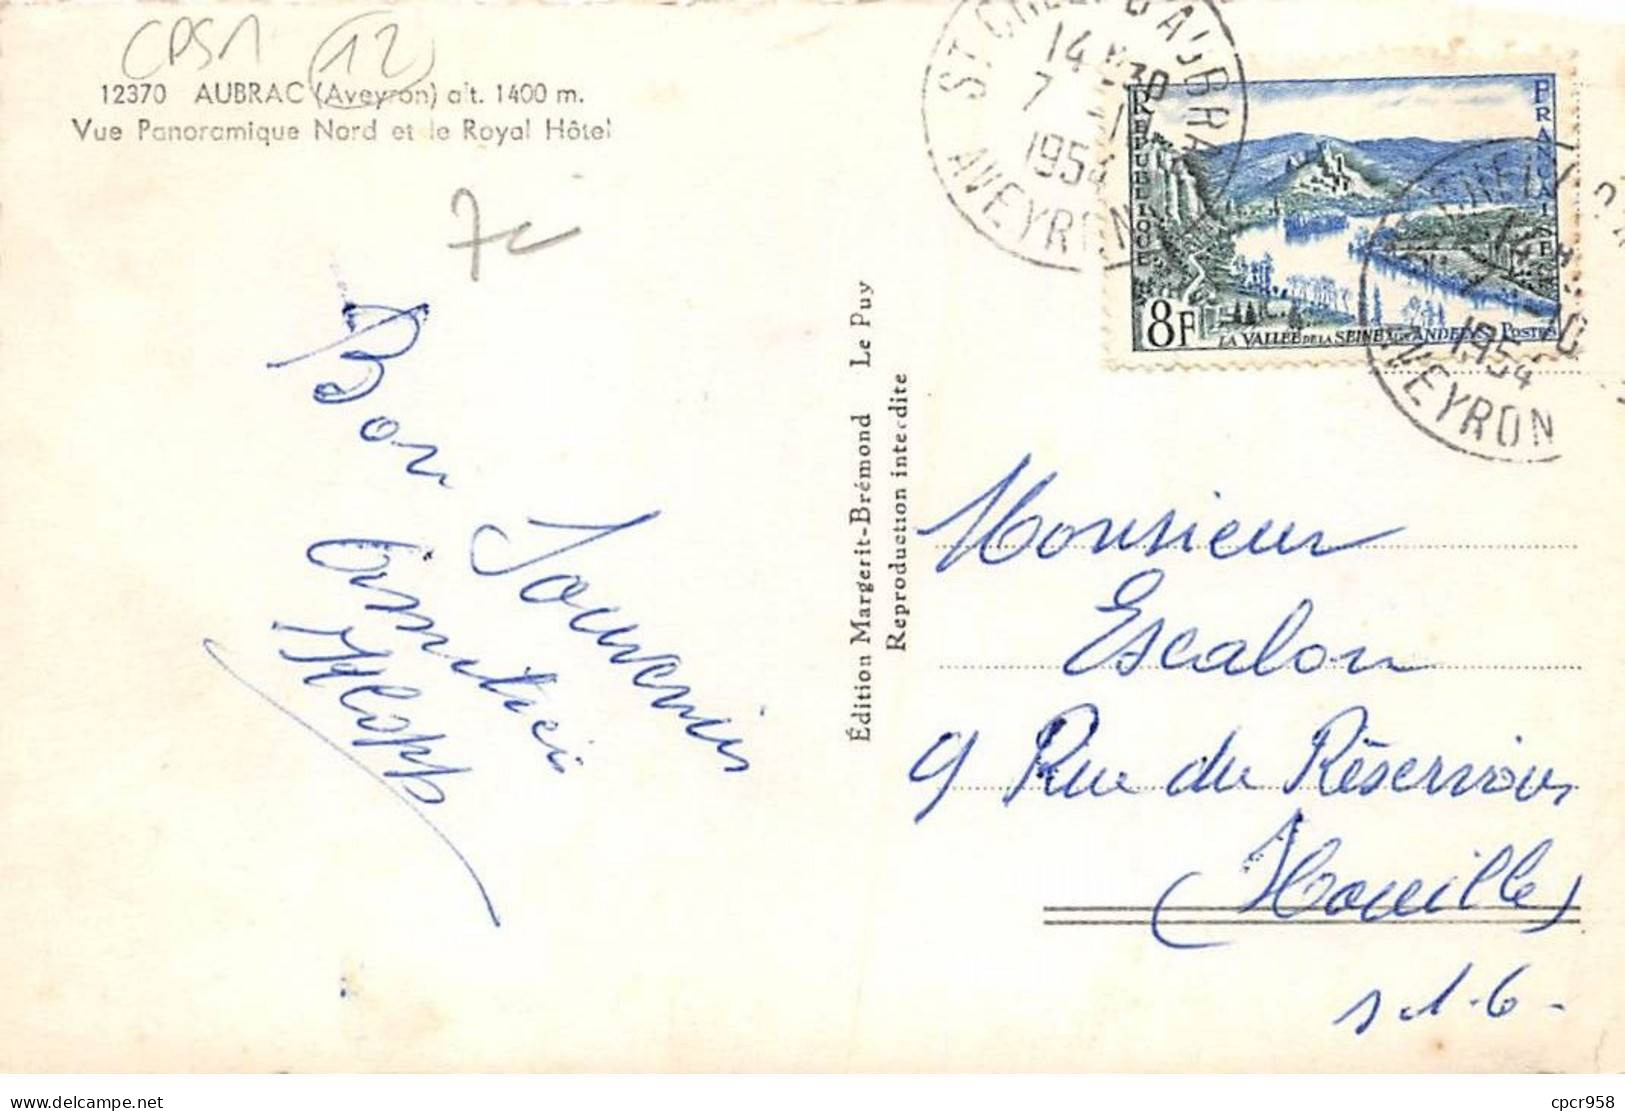 CPSM 12
12370 AUBRAC (Aveyron) alt. 1400 m.
Vue Panoramique Nord et le Royal Hôtel
7c
Bon Souvenir
Amitiés
Édition Margerit-Brémond Le Puy
Reproduction interdite
ST CHELY D'AUBRAC
14 H30
7
1954
AVEYRON
REPUBLIQUE
FRANCAISE
8F
LA VALLÉE DE LA SEINE AUX ANDELYS POSTES
1954
AVEYRON
Monsieur
Escalon
9 Rue du Réservoir
(Houille)
S et O.
cpcr958